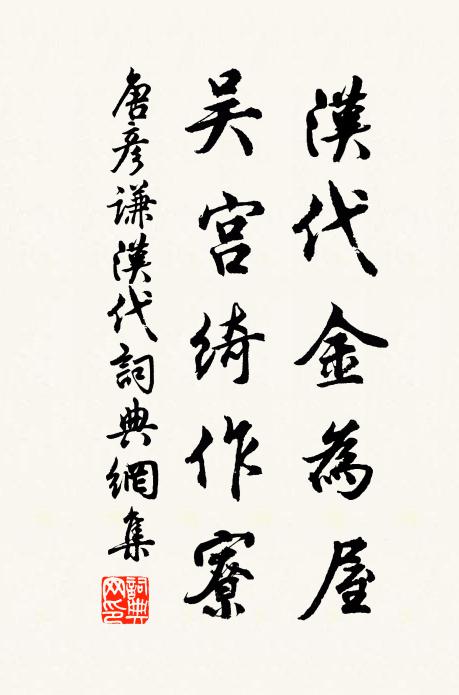 漢代金為屋
吴宫綺作寮
唐彦謙漢代詞典網集
詞典網印